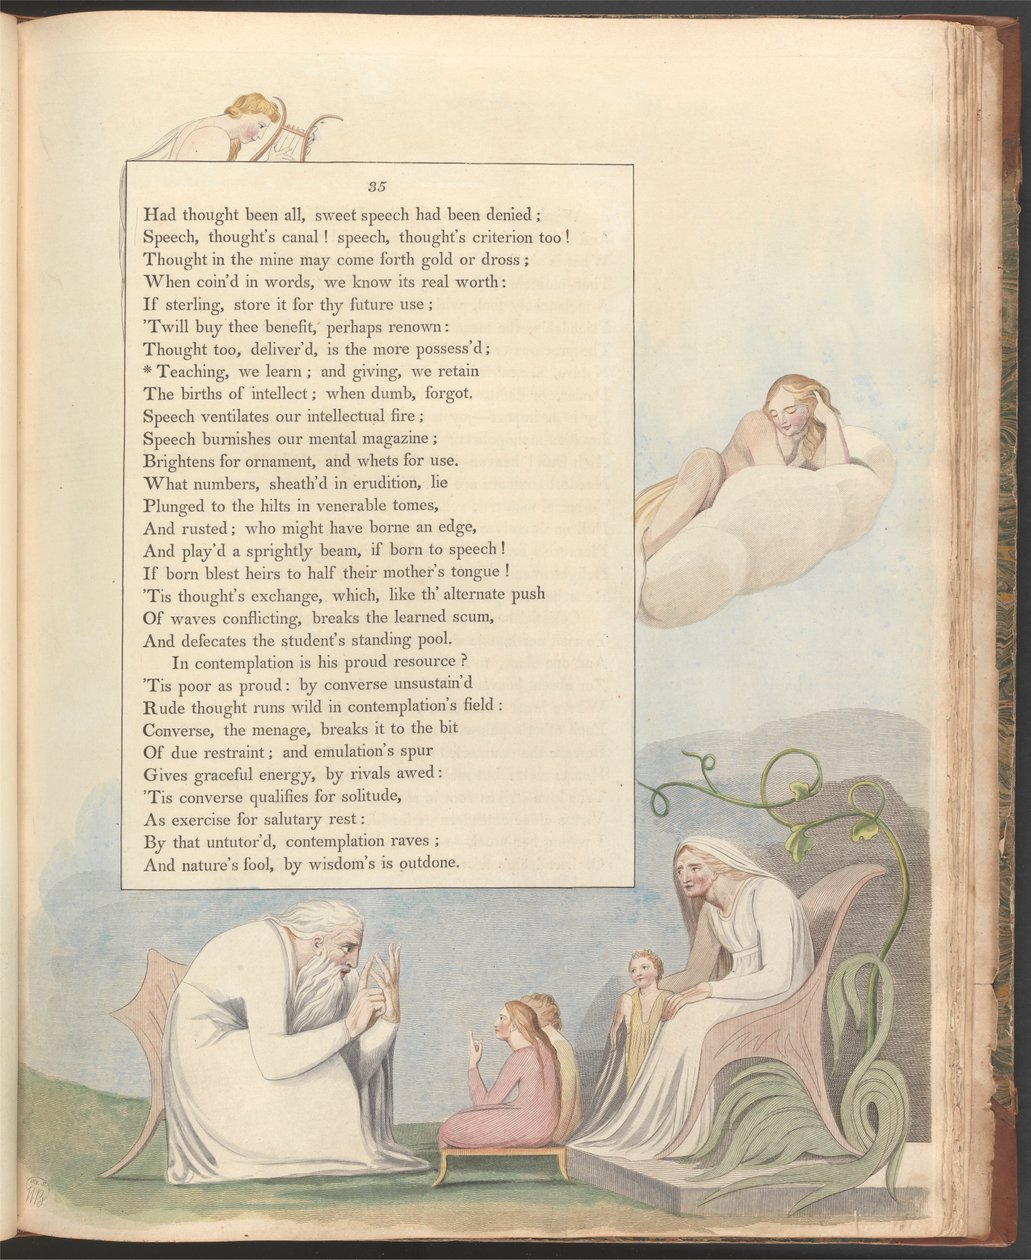 35
Had thought been all, sweet speech had been denied;
Speech, thought's canal! speech, thought's criterion too!
Thought in the mine may come forth gold or dross;
When coin'd in words, we know its real worth:
If sterling, store it for thy future use;
'Twill buy thee benefit, perhaps renown:
Thought too, deliver'd, is the more possess'd;
* Teaching, we learn; and giving, we retain
The births of intellect; when dumb, forgot.
Speech ventilates our intellectual fire;
Speech burnishes our mental magazine;
Brightens for ornament, and whets for use.
What numbers, sheath'd in erudition, lie
Plunged to the hilts in venerable tomes,
And rusted; who might have borne an edge,
And play'd a sprightly beam, if born to speech!
If born blest heirs to half their mother's tongue!
'Tis thought's exchange, which, like th' alternate push
Of waves conflicting, breaks the learned scum,
And defecates the student's standing pool.
In contemplation is his proud resource?
'Tis poor as proud: by converse unsustain'd
Rude thought runs wild in contemplation's field:
Converse, the menage, breaks it to the bit
Of due restraint; and emulation's spur
Gives graceful energy, by rivals awed:
'Tis converse qualifies for solitude,
As exercise for salutary rest:
By that untutor'd, contemplation raves;
And nature's fool, by wisdom's is outdone.